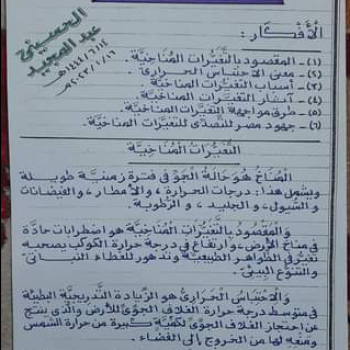 الحسيني
عبد المجيد
الْأَفْكَار:
(١) ـ المقصود بالتَّغيُّرات المُنَاخيَّة.
(٢) ـ معنى الاحتباس الحرارىّ.
(٣) ـ أسباب التغيرات المناخية
(٤) ـ آثار التغيرات المناخية.
(٥) ـ طرق مواجهة التغيرات المناخيَّة.
(٦) ـ جهود مصر للتَّصدِّى للتغيرات المناخية.
التَّغيُّرَاتُ الْمُنَاخِيَّةُ
المُنَاخُ هُوَ حَالَةُ الجَوِّ فى فترة زمنية طويلة
ويشمل هذا: درجات الحرارة، والأمطار، والفيضانات
والسُّيول، والجليد، والرُّطوبة.
وَالْمقصودُ بالتَّغيُّرات المُنَاخيَّة هو اضطرابات حادَّة
فى مناخ الأرض، وارتفاع فى درجة حرارة الكوكب يصحبه
تغيُّر فى الظَّواهر الطبيعيَّة وتدهور للغطاء النباتىِّ
والتنوع البيئىِّ.
وَالاحْتباسُ الحَرَارىُّ هو الزِّيادة التَّدريجيَّة البطيئة
فى متوسط درجة حرارة الغلاف الجوِّىِّ للأرض والَّذى ينتج
عن احتجاز الغلاف الجوِّىِّ لكميَّة كبيرة من حرارة الشمس
ومنعه لها من الخروج إلى الفضاء.